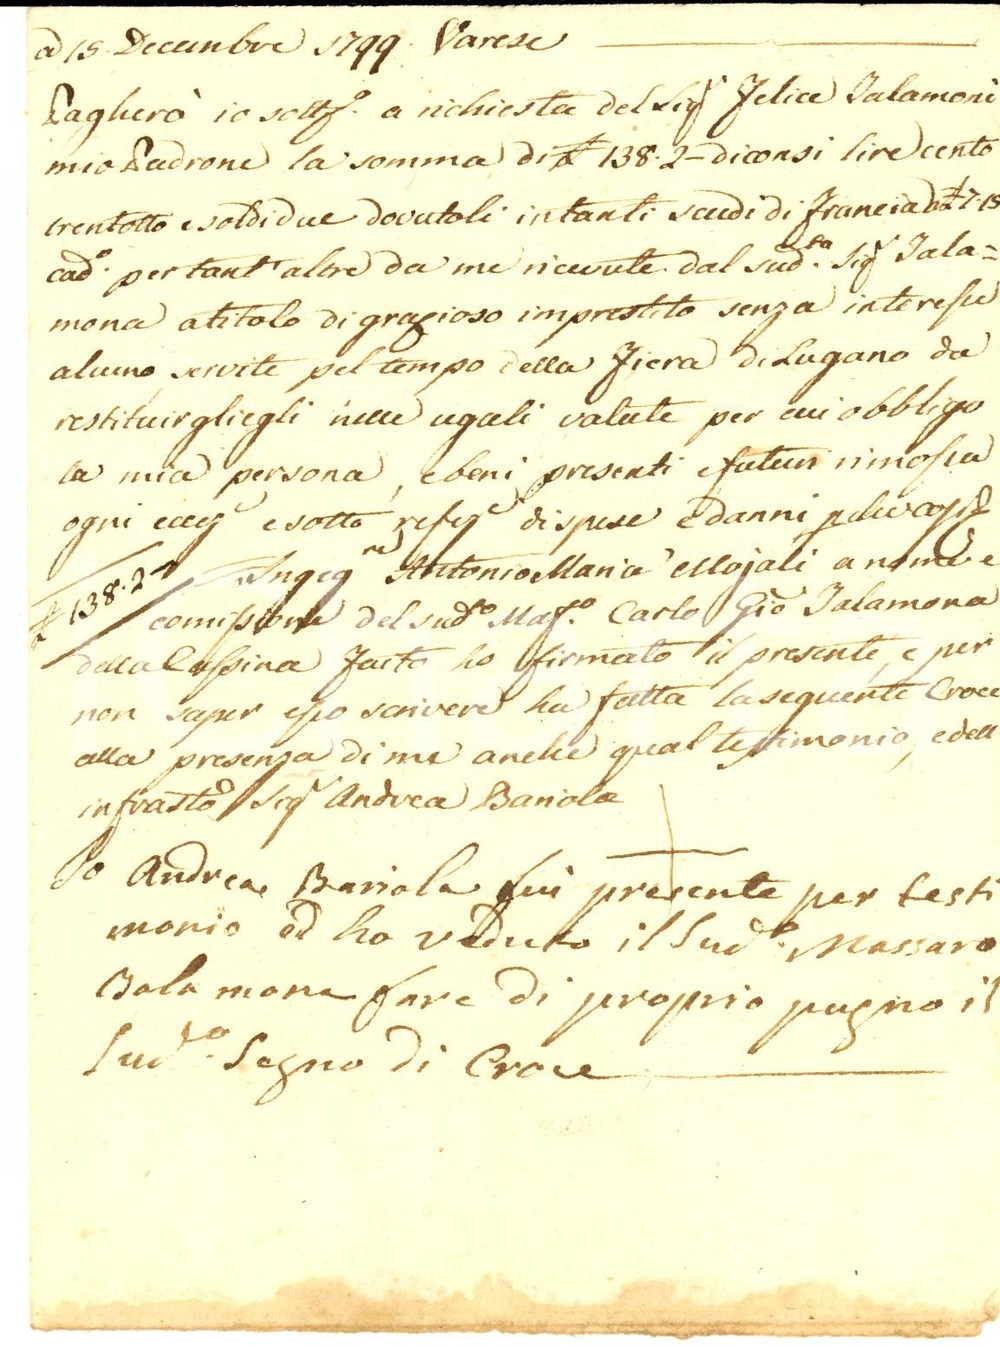 a 15 Decembre 1799. Varese
Pagherò io sottº. a richiesta del Sigʳ Felice Talamoni
mio Padrone la somma di £ 138. 2 – diconsi lire cento
trentotto e soldi due dovutoli in tanti scudi di Francia da £ 7. 15
cadº. per tant' altre da me ricevute dal sudᵗᵒ. Sigʳ Tala=
mona a titolo di grazioso imprestito senza interesse
alcuno, servite pel tempo della Fiera di Lugano da
restituirgliegli nelle uguali valute per cui obbligo
la mia persona, e beni presenti e futuri rimossa
ogni eccezᵉ e sotto refezᵉ di spese e danni
£ 138. 2 – Ingegʳᵉ Antonio Maria Mojali a nome e
comissione del sudᵗᵒ Masº. Carlo Gio Talamona
della Cassina fatto ho firmato il presente, e per
non saper esso scrivere ha fatta la seguente Croce
alla presenza di me anche qual testimonio, e dell
infrastᵒ Sigʳ Andrea Bariola
Io Andrea Bariola fui presente per testi
monio ed ho veduto il Sudº. Massaro
Bala mona fare di proprio pugno il
Sudº. Segno di Croce